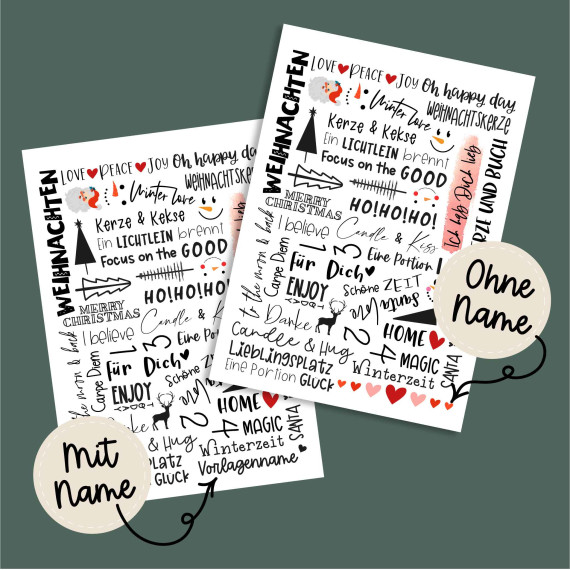 WEIHNACHTEN
LOVE PEACE JOY Oh happy day
Winter Love WEIHNACHTSKERZE
Kerze & Kekse
Ein LICHTLEIN brennt
Focus on the GOOD
Ich hab Dich lieb
MERRY
CHRISTMAS
HO!HO!HO!
to the moon & back
I believe
Candle & Kiss
Carpe Diem
1
3
Eine Portion
Für Dich
Schöne ZEIT
ENJOY
Santa
Danke
2
HOME
Candle & Hug
4
MAGIC
Lieblingsplatz
Winterzeit
Eine Portion GLÜCK
SANTA
Ohne
Name
WEIHNACHTEN
LOVE PEACE JOY Oh happy day
Winter Love WEIHNACHTSKERZE
Kerze & Kekse
Ein LICHTLEIN brennt
Focus on the GOOD
HO!HO!HO!
MERRY
CHRISTMAS
the moon & back
I believe
Candle &
Carpe Diem
1
3
Eine Porti
Für Dich
Schöne
ENJOY
Danke
2
HOME
& Hug
4
MAGIC
Winterzeit
SANTA
PLATZ
Vorlagenname
GLÜCK
Mit
Name